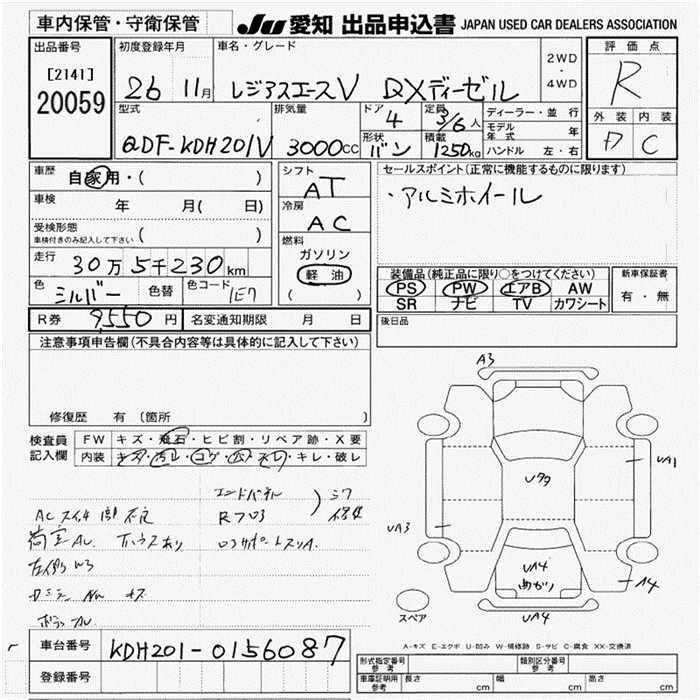 車内保管・守衛保管
JU 愛知 出品申込書 JAPAN USED CAR DEALERS ASSOCIATION
出品番号
[2141]
20059
初度登録年月
26 11月
車名・グレード
レジアスエースV DXディーゼル
2WD
・
4WD
評価点
R
外装 内装
C
型式
QDF-KDH201V
排気量
3000cc
ドア
4
形状
バン
定員
3/6人
積載
1250kg
ディーラー・並行
モデル年式 年
ハンドル 左・右
車歴 自家用・( )
車検 年 月( 日)
受検形態
車検付きのみ記入して下さい ( )
走行 30万5千230km
色 シルバー 色替 色コード 1E7
R券 9,550円 名変通知期限 月 日
シフト
AT
冷房
AC
燃料
ガソリン
軽油
( )
セールスポイント(正常に機能するものに限ります)
・アルミホイール
装備品(純正品に限り○をつけてください)
PS PW エアB AW
SR ナビ TV カワシート
新車保証書
有・無
後日品
注意事項申告欄(不具合内容等は具体的に記入して下さい)
修復歴 有(箇所 )
検査員
記入欄
FW キズ・飛石・ヒビ割・リペア跡・X要
内装 キズ・汚レ・コゲ・穴・スレ・キレ・破レ
エンドパネル
Rフロア
シワ
ACスイッチ 不良
荷室AU
A3
UA1
UA3
UA4
曲がり
A4
UA4
スペア
A-キズ E-エクボ U-凹み W-補修跡 S-サビ C-腐食 XX-交換済
車台番号 KDH201-0156087
登録番号
形式指定番号
参考
類別区分番号
参考
車庫証明用
参考
長さ cm 幅 cm 高さ cm